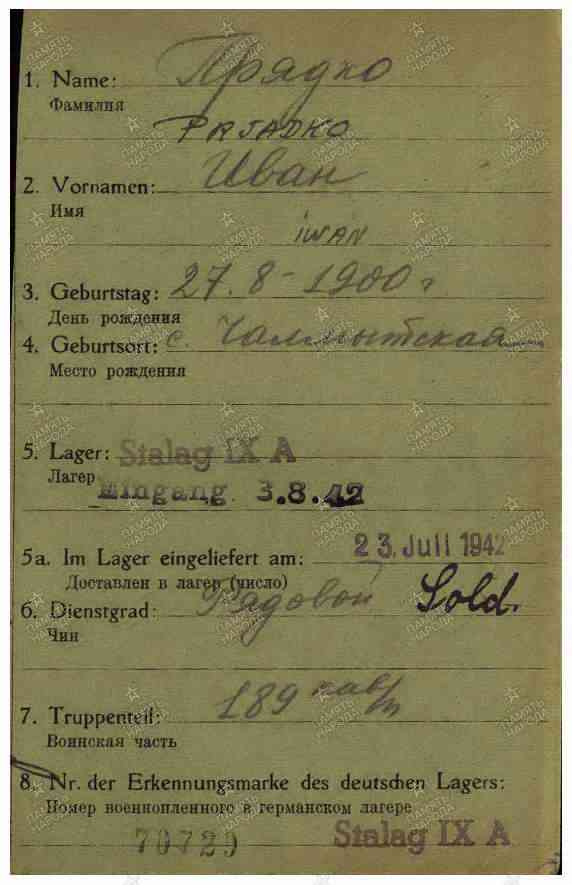 1. Name: Прядко
Фамилия
PRJADKO
2. Vornamen: Иван
Имя
IWAN
3. Geburtstag: 27.8-1900 г
День рождения
4. Geburtsort: с.
Место рождения
5. Lager: Stalag IX A
Лагер
Eingang 3.8.42
5a. Im Lager eingeliefert am: 23. Juli 1942
Доставлен в лагер (число)
6. Dienstgrad: Рядовой Sold.
Чин
7. Truppenteil: 189
Воинская часть
8. Nr. der Erkennungsmarke des deutschen Lagers:
Номер военнопленного в германском лагере
70729 Stalag IX A